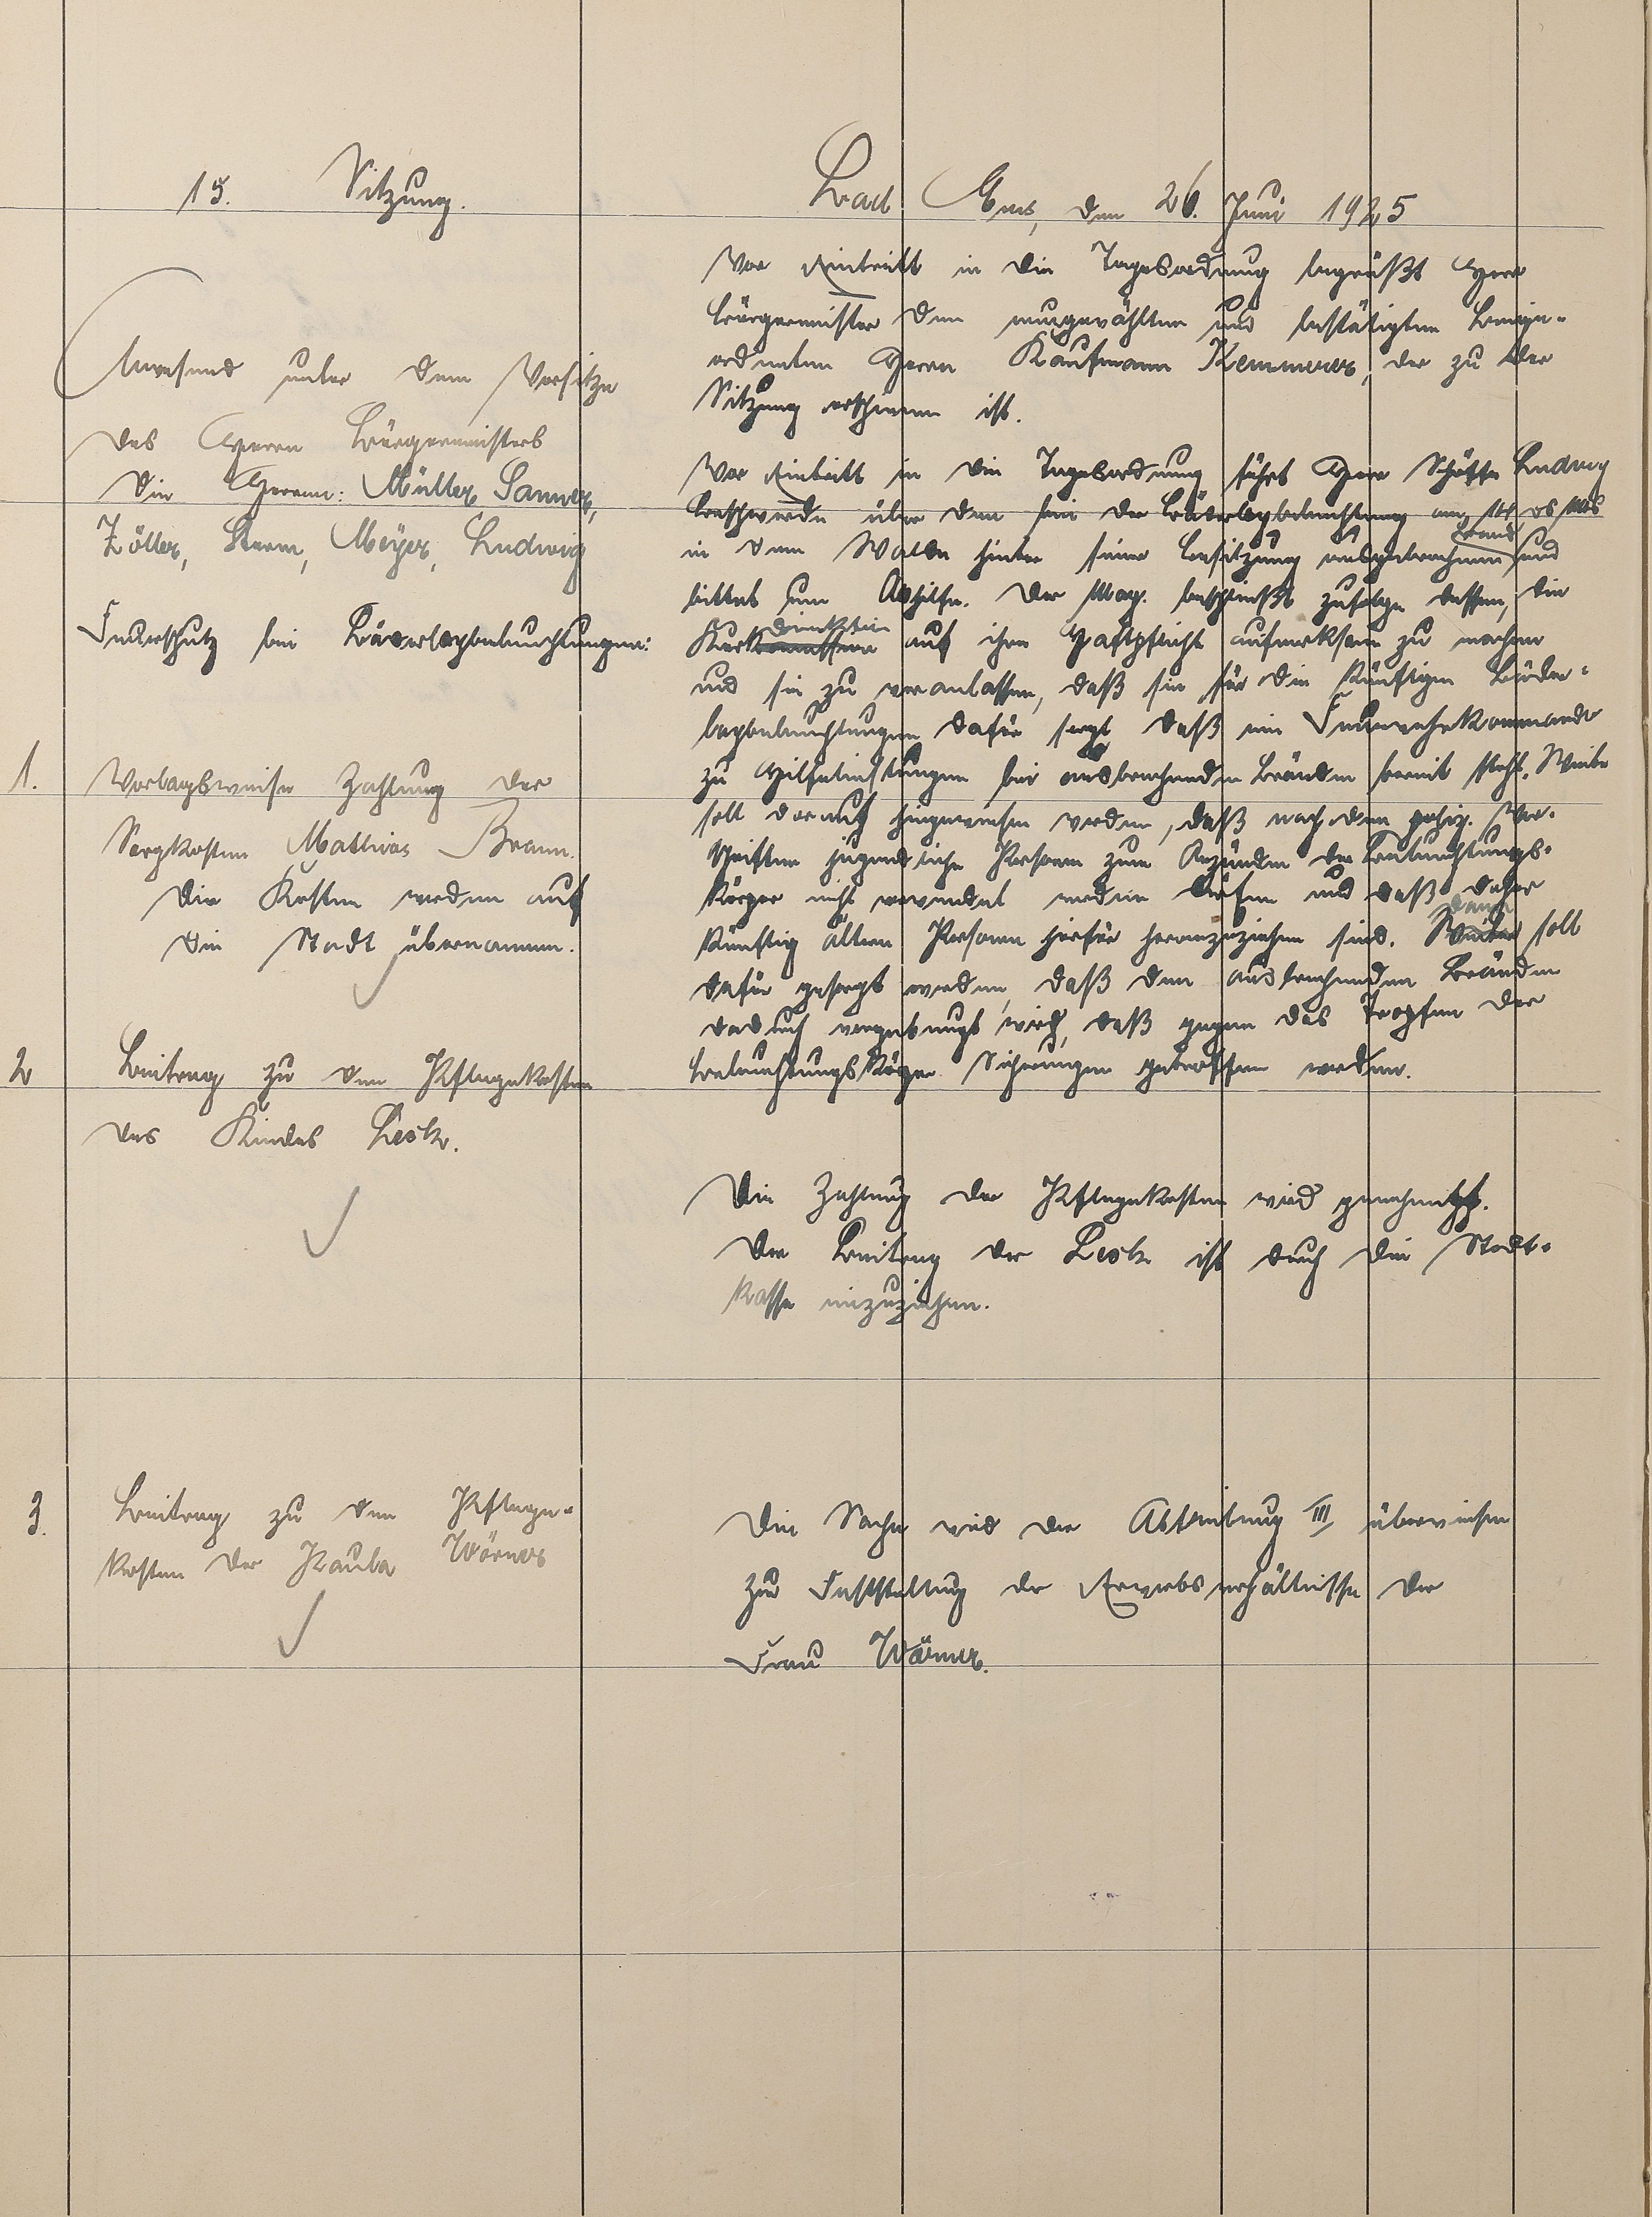 15. Sitzung.
Anwesend unter dem Vorsitze
des Herrn Bürgermeisters
die Herren: Müller, Sanner,
Zöller, Sturm, Meyer, Ludwig
Feuerschutz bei Bäderleybeleuchtungen:
1. Vorlagsweise Zahlung der
Sargkosten Mathias Braun.
Die Kosten werden auf
die Stadt übernommen.
2 Beitrag zu den Pflegekosten
des Kindes Lesk.
3. Beitrag zu den Pflege-
kosten der Paula Wörner
Bad Ems, den 26. Juni 1925
Vor Eintritt in die Tagesordnung begrüßt Herr
Bürgermeister den neugewählten und bestätigten Beige-
ordneten Herrn Kaufmann Kemmerer, der zu der
Sitzung erschienen ist.
Vor Eintritt in die Tagesordnung führt Herr Schöffe Ludwig
Beschwerde über den bei der Bäderleybeleuchtung am
in dem Walde hinter seiner Besitzung ausgebrochenen Brand und
bittet um Abhilfe. Der Mag. beschließt zufolge dessen, die
Kurdirektion auf ihre Haftpflicht aufmerksam zu machen
und sie zu veranlassen, daß sie für die künftigen Bäder-
leybeleuchtungen dafür sorgt daß ein Feuerwehrkommando
zu Hilfeleistungen bei ausbrechenden Bränden bereit steht. Weiter
soll darauf hingewiesen werden, daß nach den Vor-
schriften jugendliche Personen zum Anzünden der Beleuchtungs-
körper nicht verwendet werden dürfen und daß daher
künftig ältere Personen hierfür heranzuziehen sind. Weiter soll
dafür gesorgt werden, daß den ausbrechenden Bränden
dadurch vorgebeugt wird, daß gegen das Tropfen der
Beleuchtungskörper Sicherungen getroffen werden.
Die Zahlung der Pflegekosten wird genehmigt.
Der Beitrag der Lesk ist durch die Stadt-
kasse einzuziehen.
Die Sache wird der Abteilung III überwiesen
zur Feststellung der Erwerbsverhältnisse der
Frau Wörner.